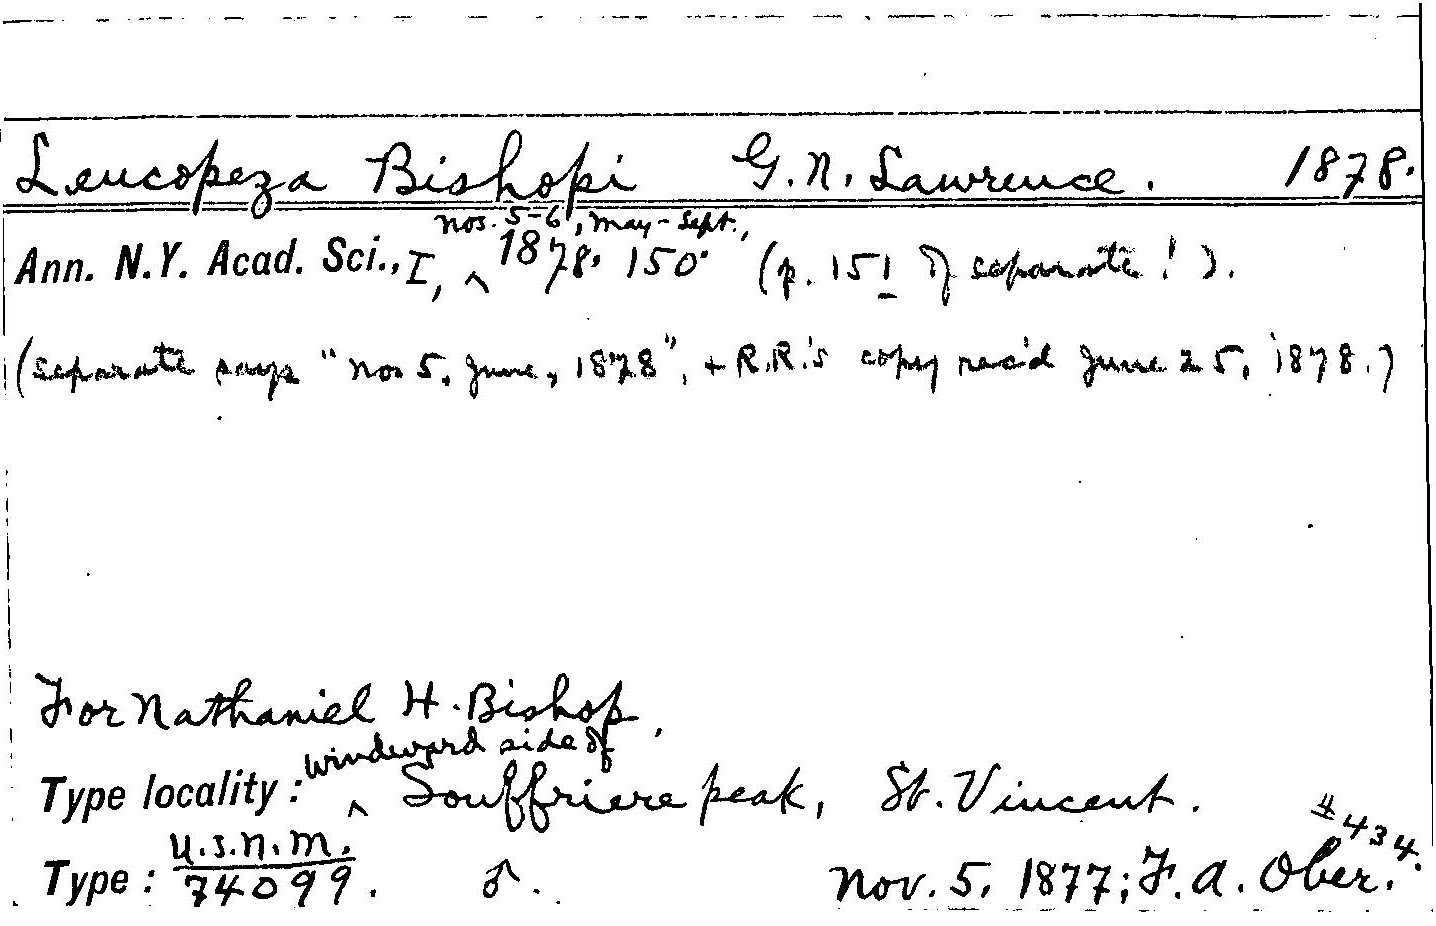 Leucopeza Bishopi G.N. Lawrence. 1878.
nos. 5-6, May-Sept.,
Ann. N.Y. Acad. Sci., I, ^ 1878. 150. (p. 151 of separate!).
(separate says "no. 5, June, 1878", + R.R.'s copy rec'd June 25, 1878.)
For Nathaniel H. Bishop.
windward side of
Type locality: ^ Souffriere peak, St. Vincent.
#434.
Type: U.S.N.M. 74099. ♂. Nov. 5, 1877; F.A. Ober.